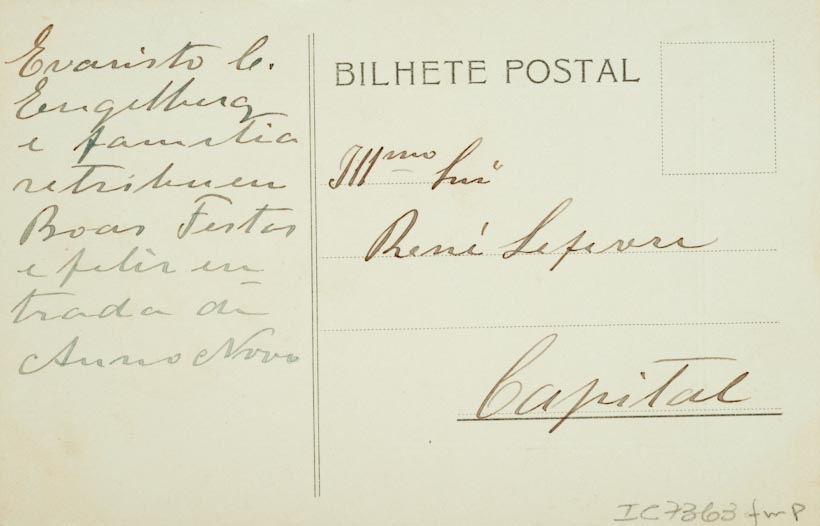 Evaristo C.
Engelberg
e familia
retribuen
Boas Festas
e feliz en
trada de
Anno Novo
BILHETE POSTAL
Illmo Snr
René Lefevre
Capital
IC7363